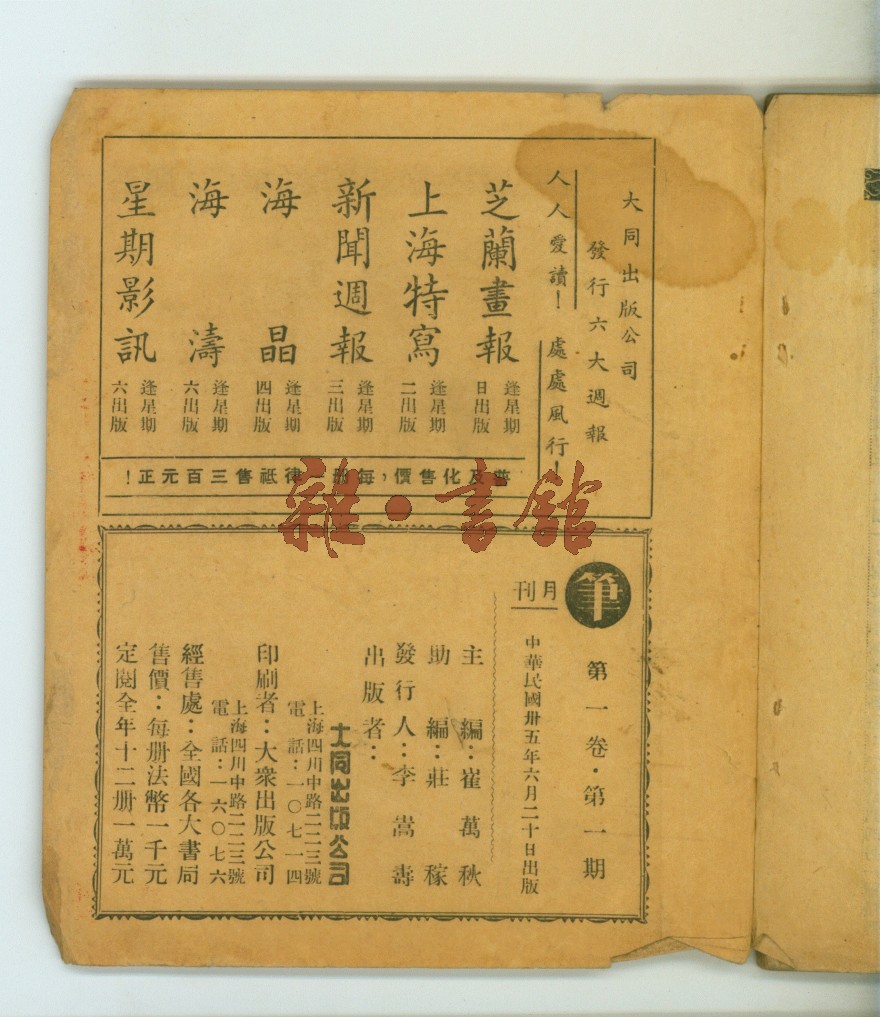 大同出版公司
發行六大週報
人人愛讀！ 處處風行！
芝蘭畫報 逢星期日出版
上海特寫 逢星期二出版
新聞週報 逢星期三出版
海晶 逢星期四出版
海濤 逢星期六出版
星期影訊 逢星期六出版
普及化售價，每冊一律祇售三百元正！
雜·書館
筆
月刊
第一卷·第一期
中華民國卅五年六月二十日出版
主編：崔萬秋
助編：莊稼
發行人：李嵩壽
出版者：
大同出版公司
上海四川中路二二三號
電話：一〇七一四
印刷者：大衆出版公司
上海四川中路二二三號
電話：一六〇七六
經售處：全國各大書局
售價：每册法幣一千元
定閱全年十二册一萬元